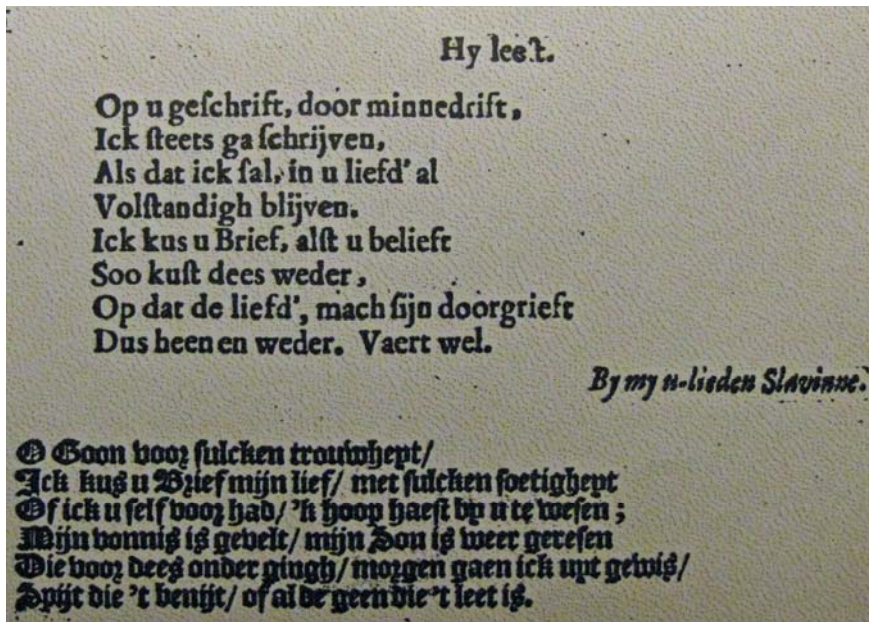 Hy leest.
Op u geſchrift, door minnedrift,
Ick ſteets ga ſchrijven,
Als dat ick ſal, in u liefd' al
Volſtandigh blijven.
Ick kus u Brief, alſt u belieft
Soo kuſt dees weder,
Op dat de liefd', mach ſijn doorgrieft
Dus heen en weder. Vaert wel.
By my u-lieden Slavinne.
O Goon voor ſulcken trouwheyt/
Ick kus u Brief mijn lief/ met ſulcken ſoetigheyt
Of ick u ſelf voor had/ 'k hoop haeſt by u te weſen;
Mijn vonnis is gevelt/ mijn Son is weer gereſen
Die voor dees onder gingh/ morgen gaen ick uyt gewis/
Spijt die 't benijt/ of al de geen die 't leet is.